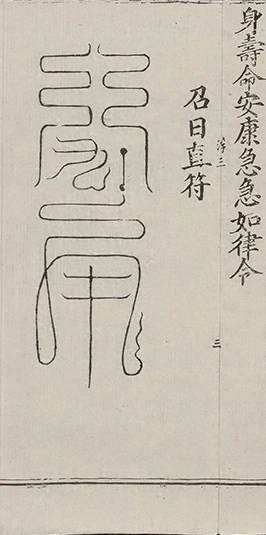 身壽命安康急急如律令
三
召日直符